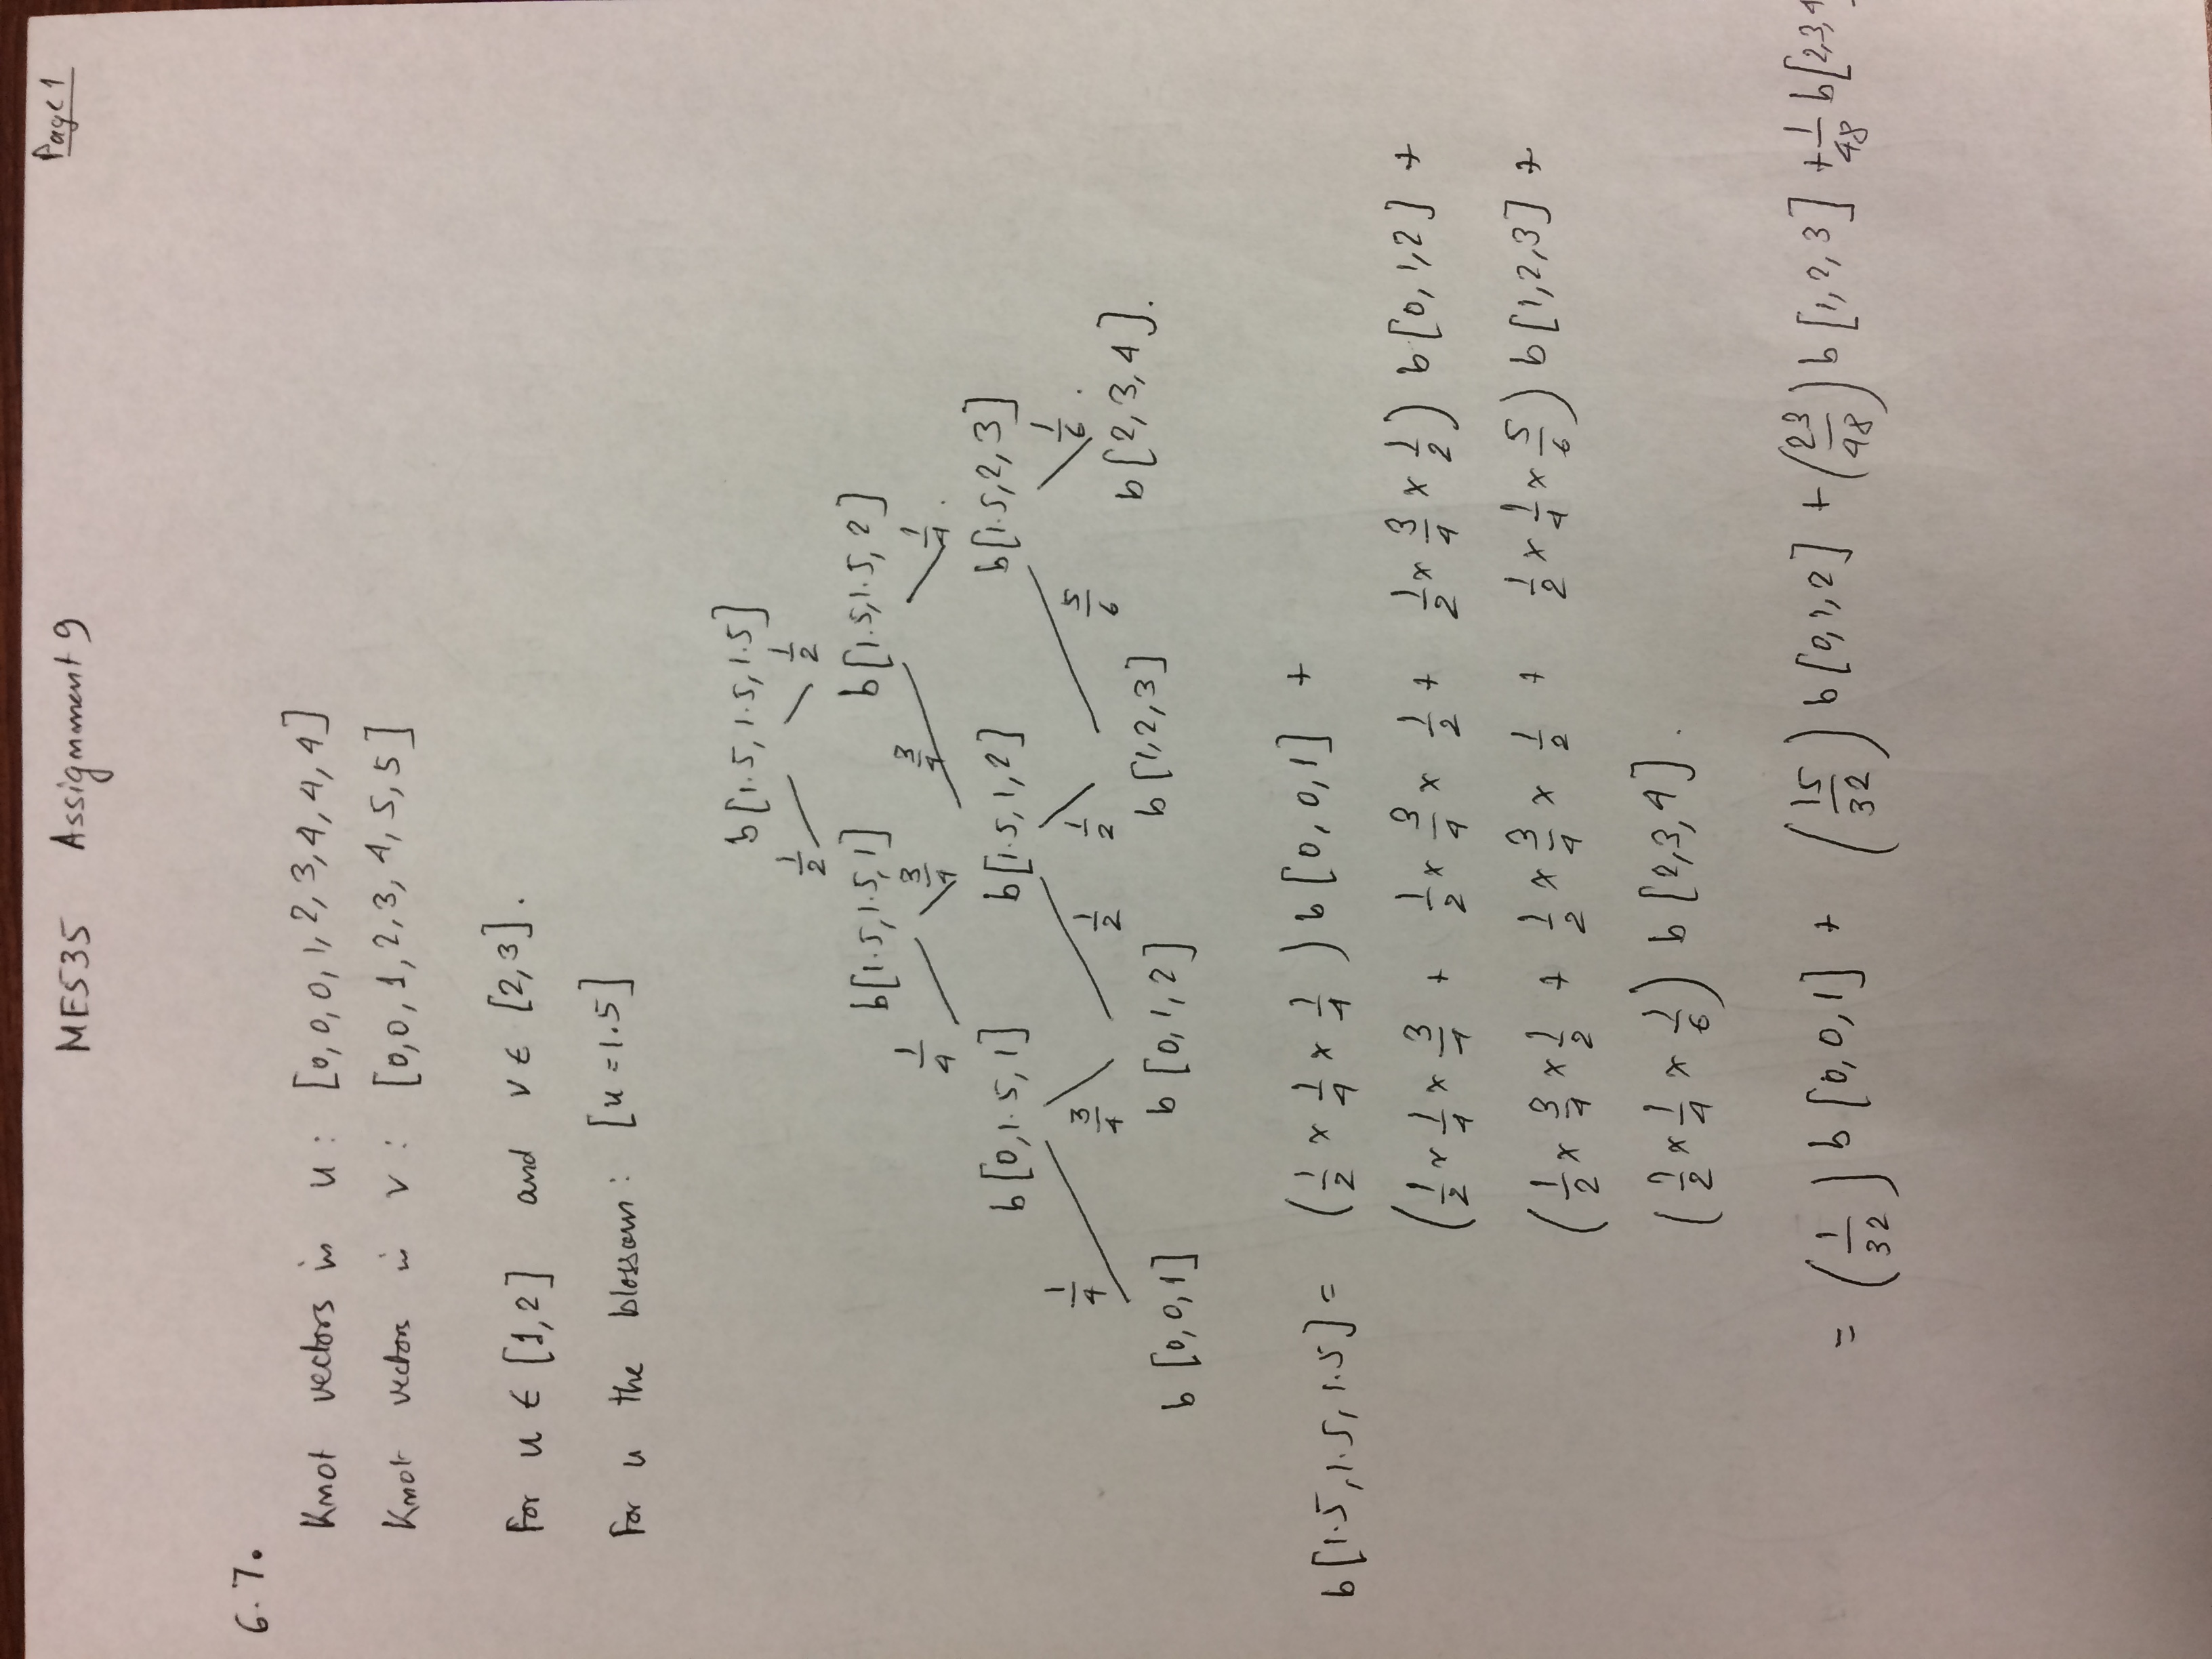 Page 1
ME535 Assignment 9
6.7.
Knot vectors in u : [0, 0, 0, 1, 2, 3, 4, 4, 4]
Knot vectors in v : [0, 0, 1, 2, 3, 4, 5, 5]
For u ∈ [1, 2] and v ∈ [2, 3].
For u the blossom : [u = 1.5]
b[1.5, 1.5, 1.5]
1/2 1/2
b[1.5, 1.5, 1] b[1.5, 1.5, 2]
1/4 3/4 3/4 1/4.
b[0, 1.5, 1] b[1.5, 1, 2] b[1.5, 2, 3]
1/4 3/4 1/2 1/2 5/6 1/6.
b[0, 0, 1] b[0, 1, 2] b[1, 2, 3] b[2, 3, 4].
b[1.5, 1.5, 1.5] = (1/2 × 1/4 × 1/4) b[0, 0, 1] +
(1/2 × 1/4 × 3/4 + 1/2 × 3/4 × 1/2 + 1/2 × 3/4 × 1/2) b[0, 1, 2] +
(1/2 × 3/4 × 1/2 + 1/2 × 3/4 × 1/2 + 1/2 × 1/4 × 5/6) b[1, 2, 3] +
(1/2 × 1/4 × 1/6) b[2, 3, 4].
= (1/32) b[0, 0, 1] + (15/32) b[0, 1, 2] + (23/48) b[1, 2, 3] + 1/48 b[2, 3, 4